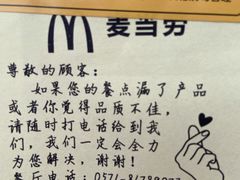 麦当劳
尊敬的顾客：
如果您的餐点漏了产品
或者你觉得品质不佳，
请随时打电话给到我
们，我们一定会全力
为您解决，谢谢！
餐厅电话：0571-